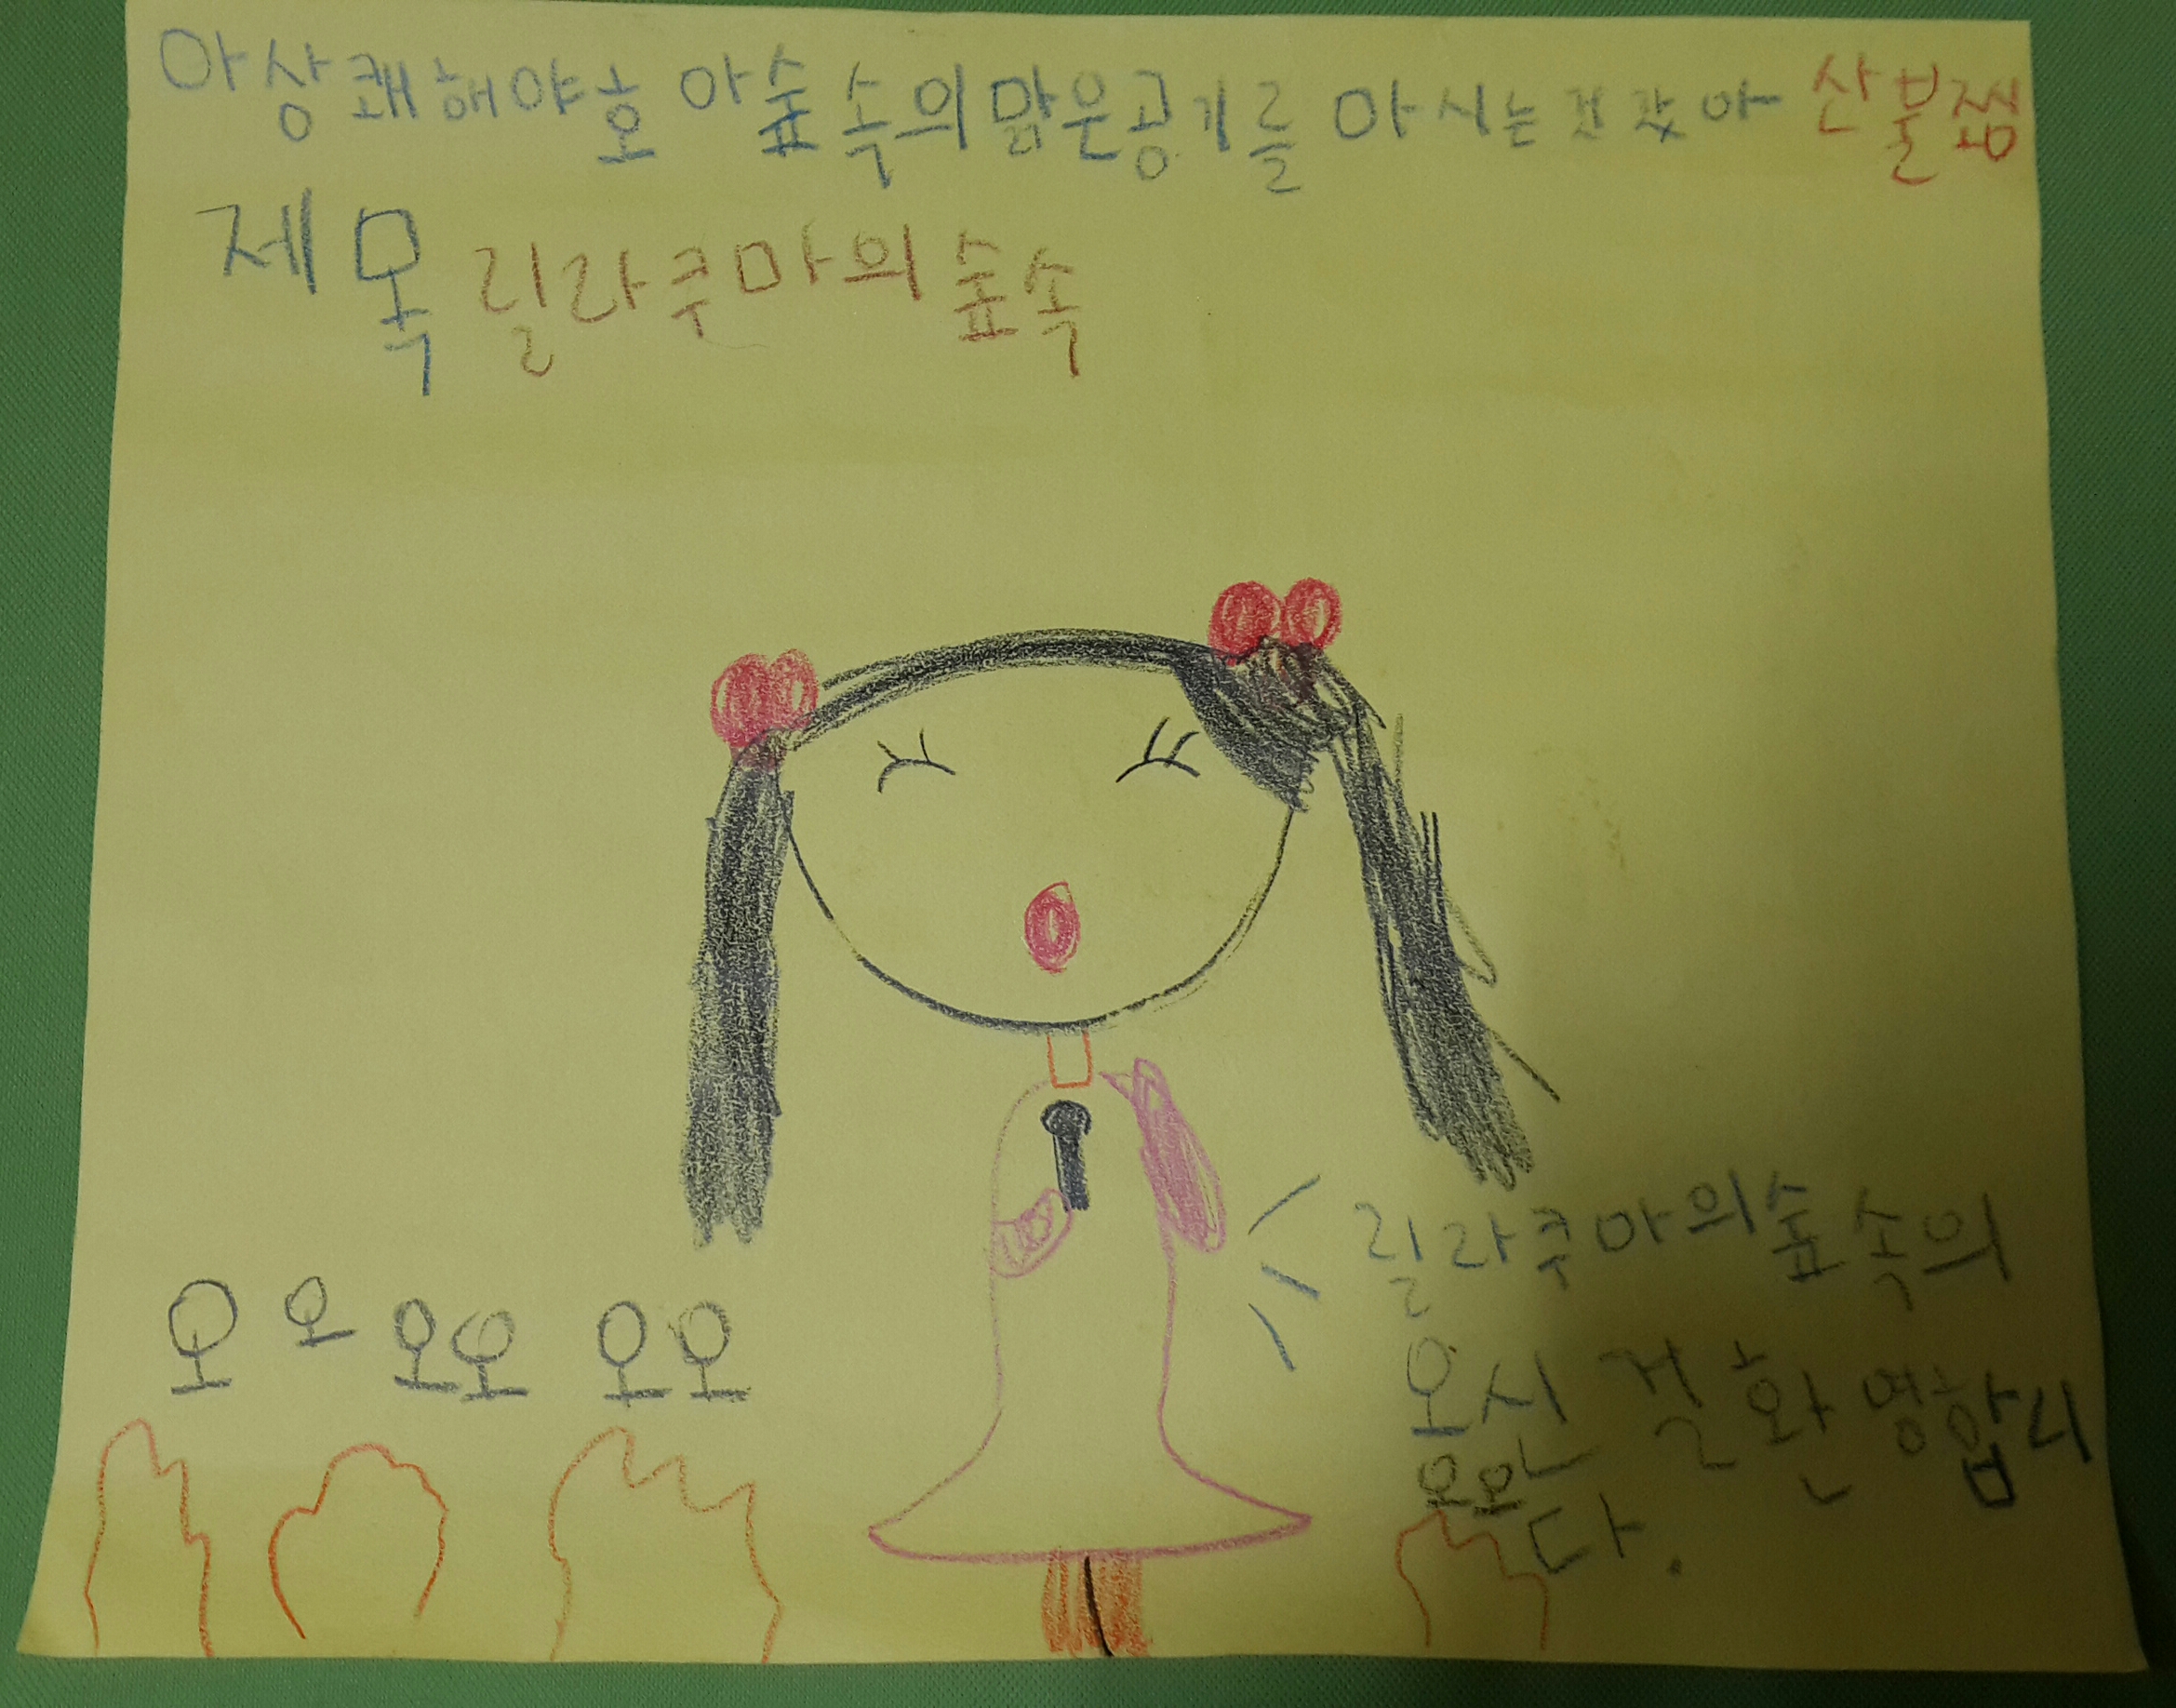 아상쾌해야호 아숲속의맑은공기를 마시는것갔아 산불찜
제목 릴라쿠마의숲속
오 오 오오 오오
릴라쿠마의숲속의
오신 걸 환영합니
오오
다.